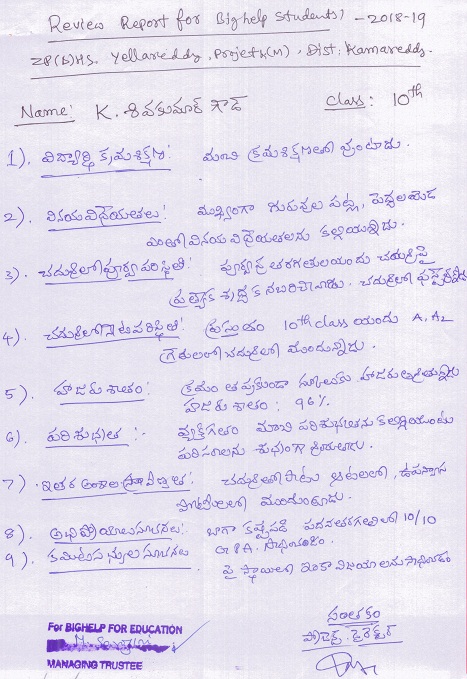 Review Report for Bighelp Students' - 2018-19
ZP(b)HS. Yellareddy, Projet(M), Dist: Kamareddy.
Name: K. శివకుమార్ గౌడ్ Class: 10th
1). విద్యార్థి క్రమశిక్షణ: మంచి క్రమశిక్షణతో వుంటాడు.
2). వినయవిధేయతలు: ముఖ్యంగా గురువుల పట్ల, పెద్దలయెడ
ఎంతో వినయ విధేయతలను కల్గియున్నాడు.
3). చదువులో పూర్వపరిస్థితి: పూర్వపు తరగతులయందు చదువుపై
ప్రత్యేక శ్రద్ధ కనబరిచినాడు. చదువులో
4). చదువులో నేటి పరిస్థితి: ప్రస్తుతం 10th class యందు A1, A2
గ్రేడులలో చదువులో ముందున్నాడు.
5). హాజరు శాతం: క్రమం తప్పకుండా స్కూలుకు హాజరు అవుతున్నాడు
హాజరు శాతం: 96%.
6). పరిశుభ్రత :- వ్యక్తిగతం మంచి పరిశుభ్రతను కలిగియుంటూ
పరిసరాలను శుభ్రంగా
7). ఇతర అంశాల ప్రావీణ్యత: చదువుతోపాటు ఆటలలో, ఉపన్యాస
పోటీలలో ముందుంటాడు.
8). అభిప్రాయాలు సూచనలు: బాగా కష్టపడి పదవతరగతిలో 10/10
GPA. సాధించడం.
9). కమిటి సభ్యుల సూచనలు పై స్థాయిలో ఇంకా విజయాలను సాధించడం
సంతకం
ప్రాజెక్ట్ డైరెక్టర్
For BIGHELP FOR EDUCATION
MANAGING TRUSTEE